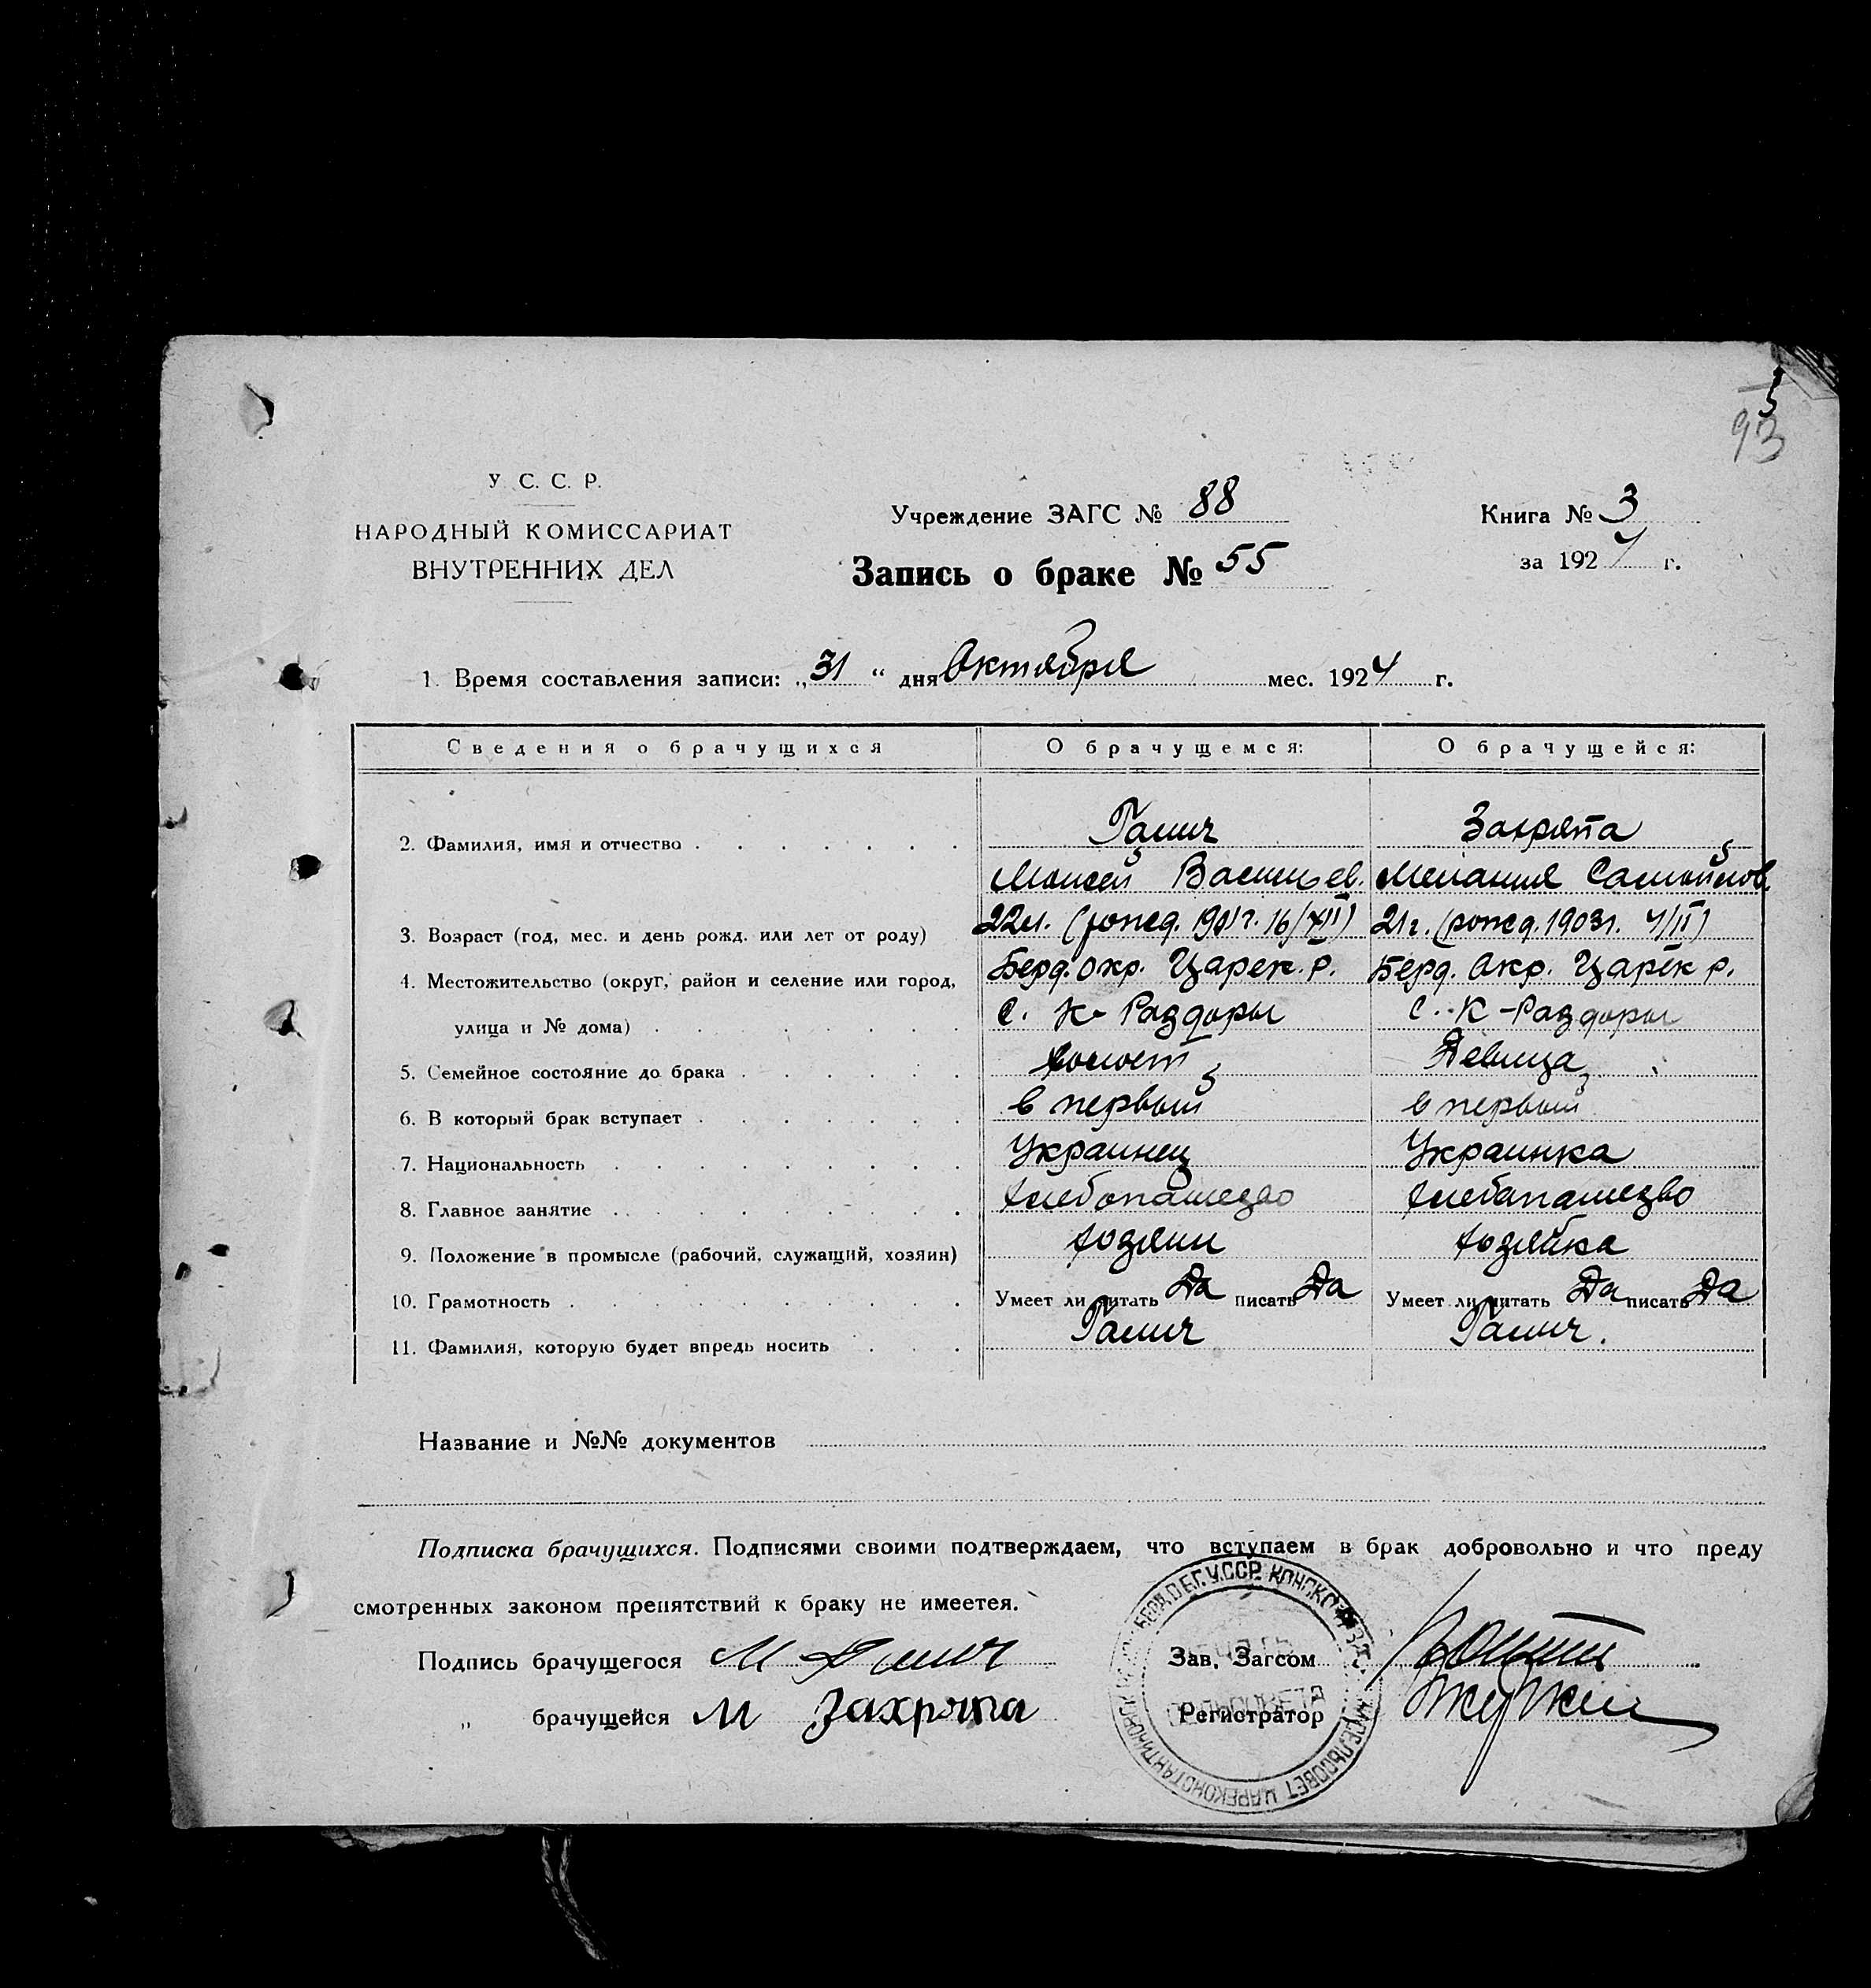 93
У. С. С. Р.
НАРОДНЫЙ КОМИССАРИАТ
ВНУТРЕННИХ ДЕЛ
Учреждение ЗАГС № 88
Книга № 3
Запись о браке № 55
за 1924 г.
1. Время составления записи: „31“ дня Октября мес. 1924 г.
Сведения о брачущихся О брачущемся: О брачущейся:
2. Фамилия, имя и отчество Галич Захрята
Моисей Васильев. Мелания Самойлов.
3. Возраст (год, мес. и день рожд. или лет от роду) 22л. (рожд. 1901г. 16/XII) 21г. (рожд. 1903г. 4/II)
4. Местожительство (округ, район и селение или город, Берд. окр. Царек. р. Берд. Окр. Царек р.
улица и № дома) с. К-Раздоры С. К-Раздоры
5. Семейное состояние до брака холост Девица
6. В который брак вступает в первый в первый
7. Национальность Украинец Украинка
8. Главное занятие хлебопашество хлебапашество
9. Положение в промысле (рабочий, служащий, хозяин) хозяин хозяйка
10. Грамотность Умеет ли читать Да писать Да Умеет ли читать Да писать Да
11. Фамилия, которую будет впредь носить Галич Галич.
Название и №№ документов
Подписка брачущихся. Подписями своими подтверждаем, что вступаем в брак добровольно и что преду
смотренных законом препятствий к браку не имеетея.
Подпись брачущегося М Галич Зав. Загсом
„ брачущейся М Захрята Регистратор